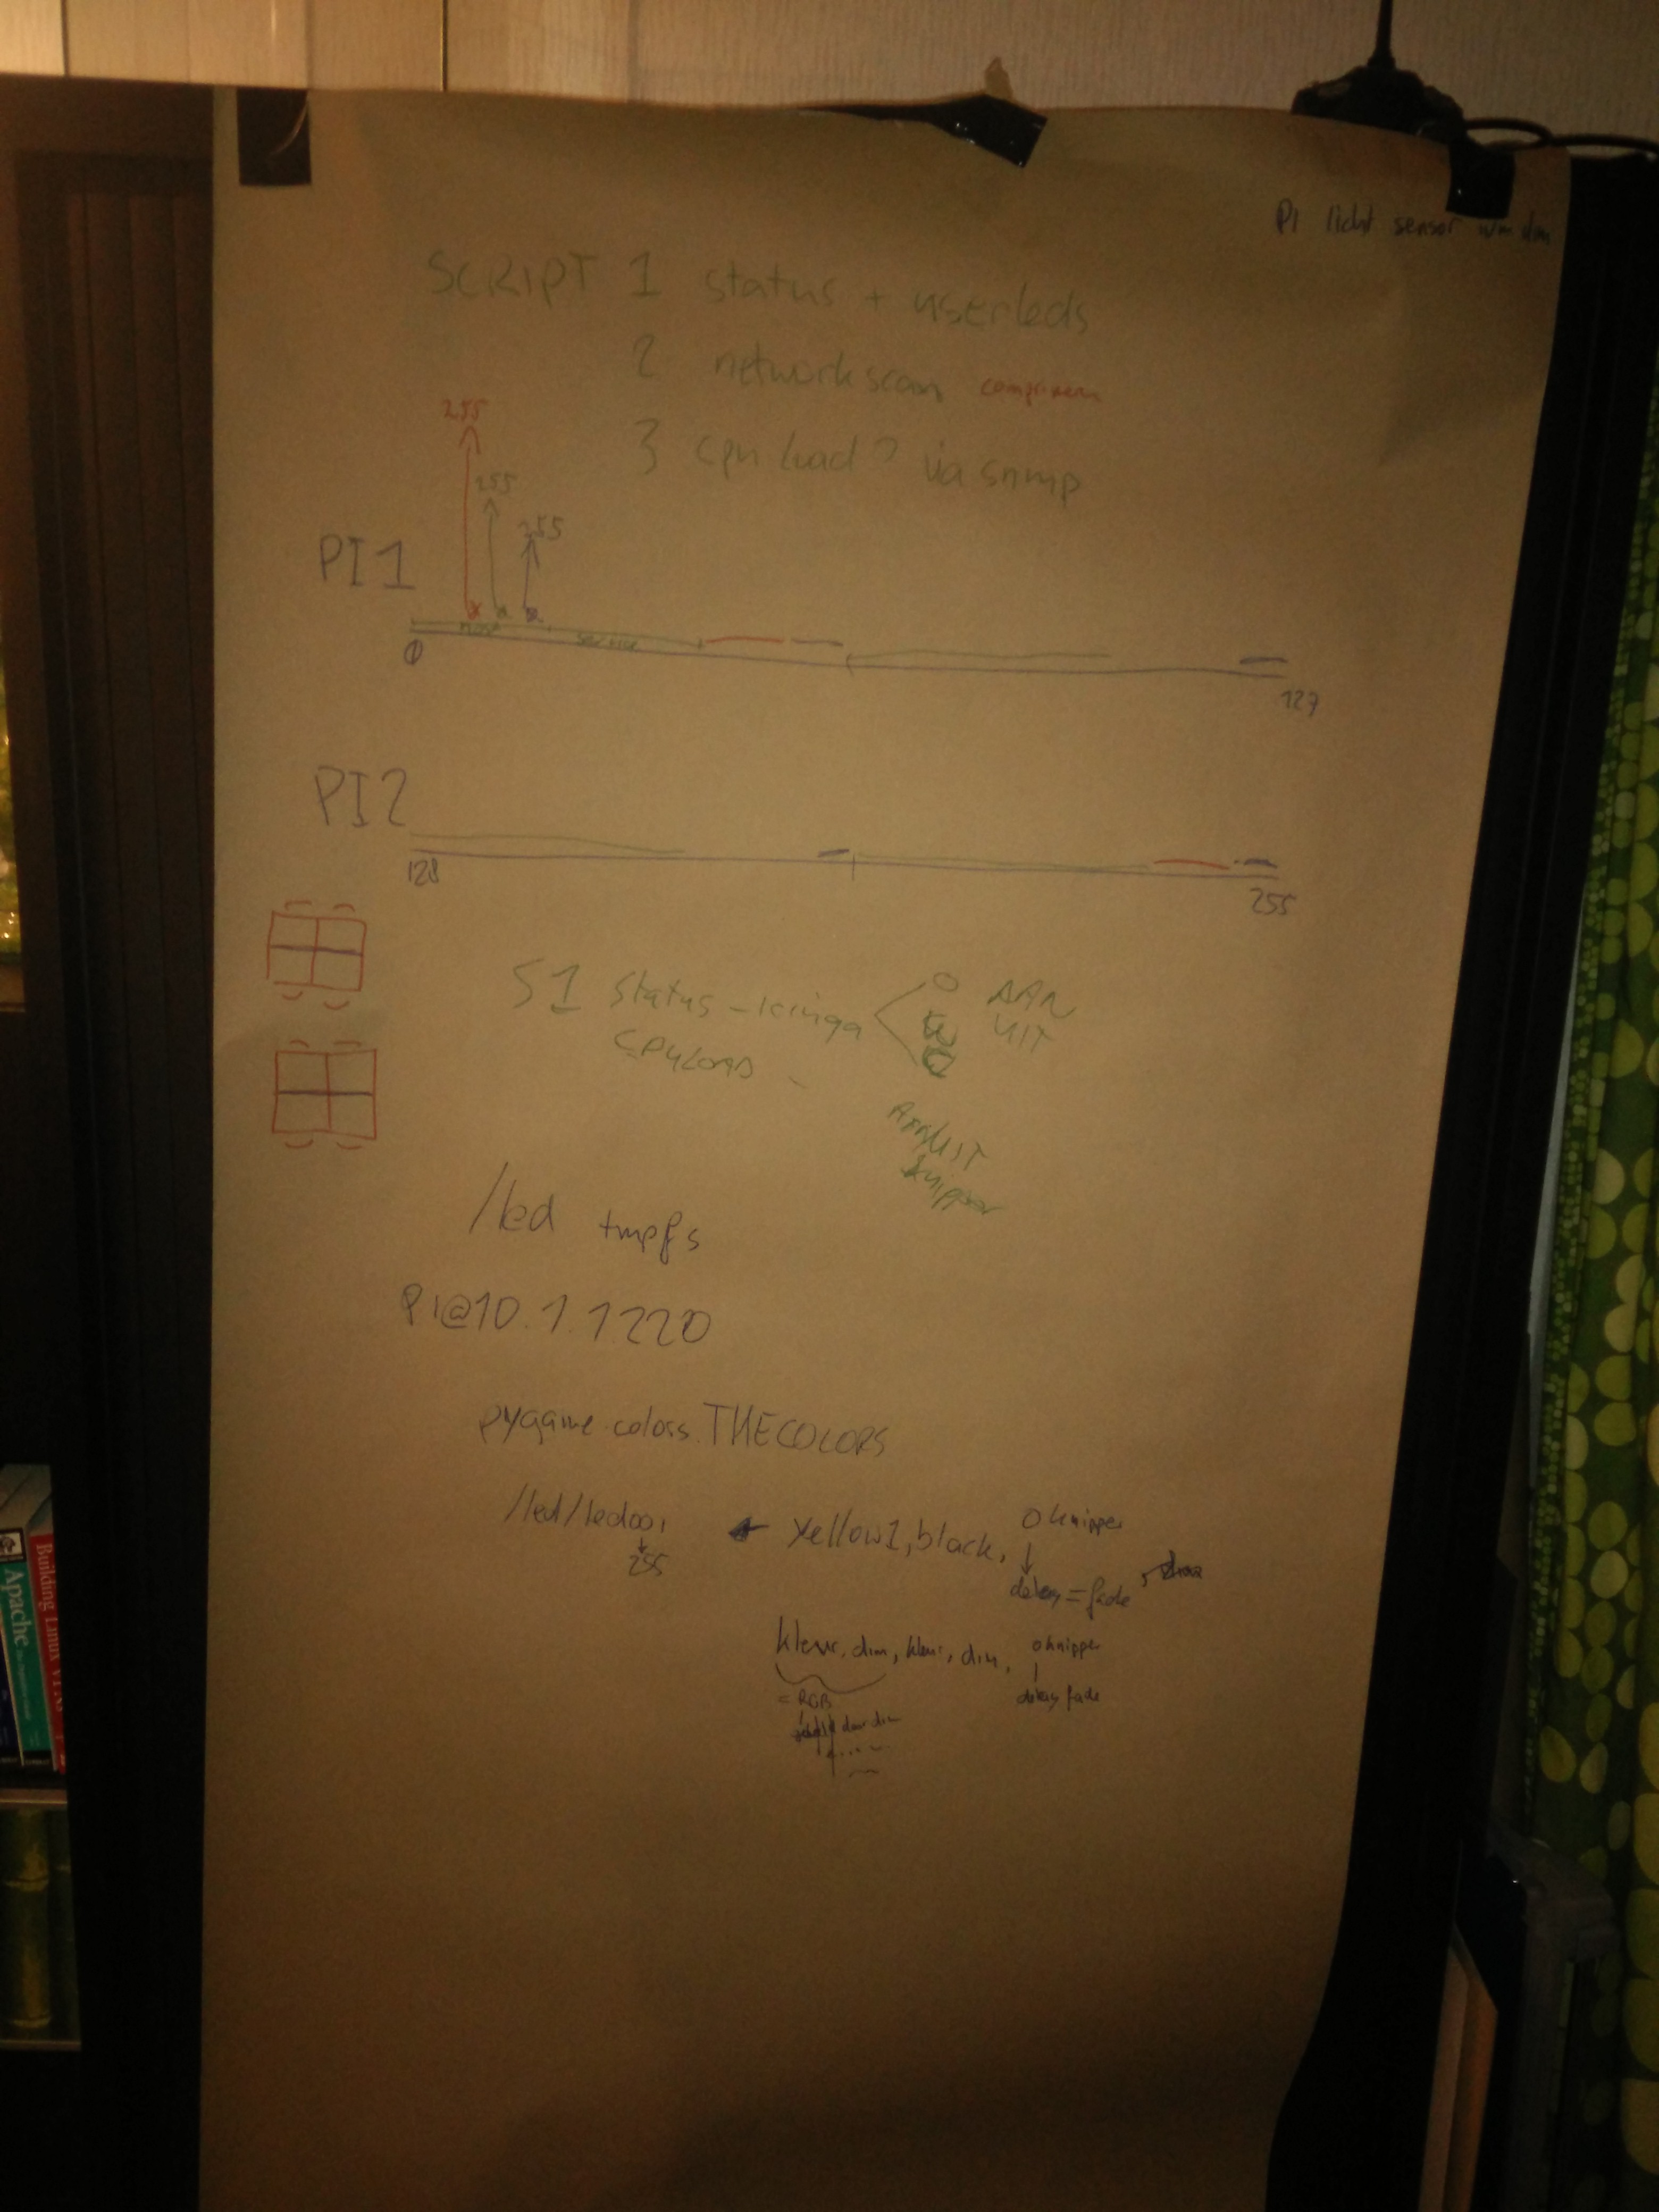 PI licht sensor
SCRIPT 1 status + userleds
2 network scan
3 cpu load? via snmp
255
255
255
PI 1
host
service
0
127
PI 2
128
255
S1 status - icinga
CPULOAD
O AAN
UIT
AAN/UIT
knipper
/led tmpfs
PI@10.1.1220
pygame.colors.THECOLORS
/led/led001
255
yellow1, black,
0 knipper
delay = fade
kleur, dim, kleur, dim,
0 knipper
delay fade
= RGB
door dim
Building Linux VPNs
Apache